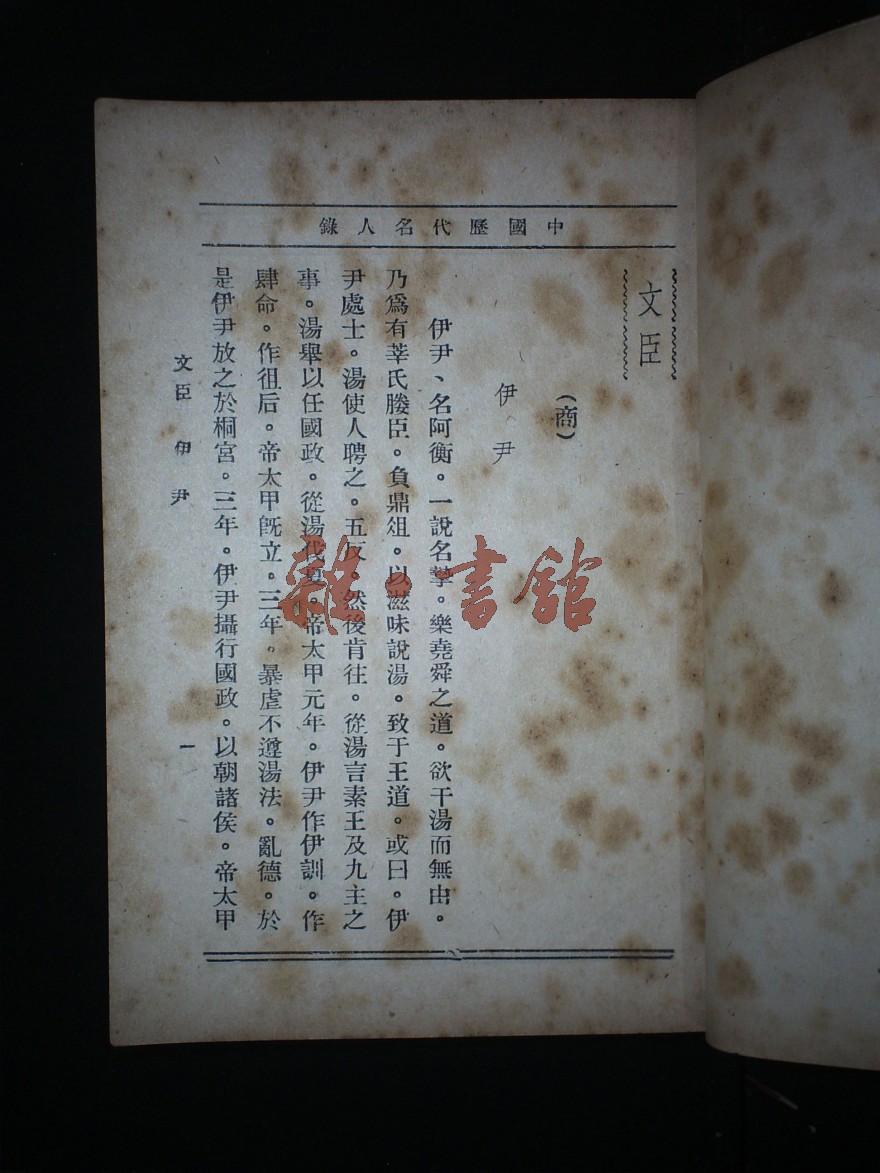 中國歷代名人錄
文臣
(商)
伊尹
伊尹、名阿衡。一說名摯。樂堯舜之道。欲干湯而無由。
乃爲有莘氏媵臣。負鼎俎。以滋味說湯。致于王道。或曰。伊
尹處士。湯使人聘之。五反。然後肯往。從湯言素王及九主之
事。湯舉以任國政。從湯伐夏。帝太甲元年。伊尹作伊訓。作
肆命。作徂后。帝太甲旣立。三年。暴虐不遵湯法。亂德。於
是伊尹放之於桐宮。三年。伊尹攝行國政。以朝諸侯。帝太甲
文臣 伊尹 一
雜·書館